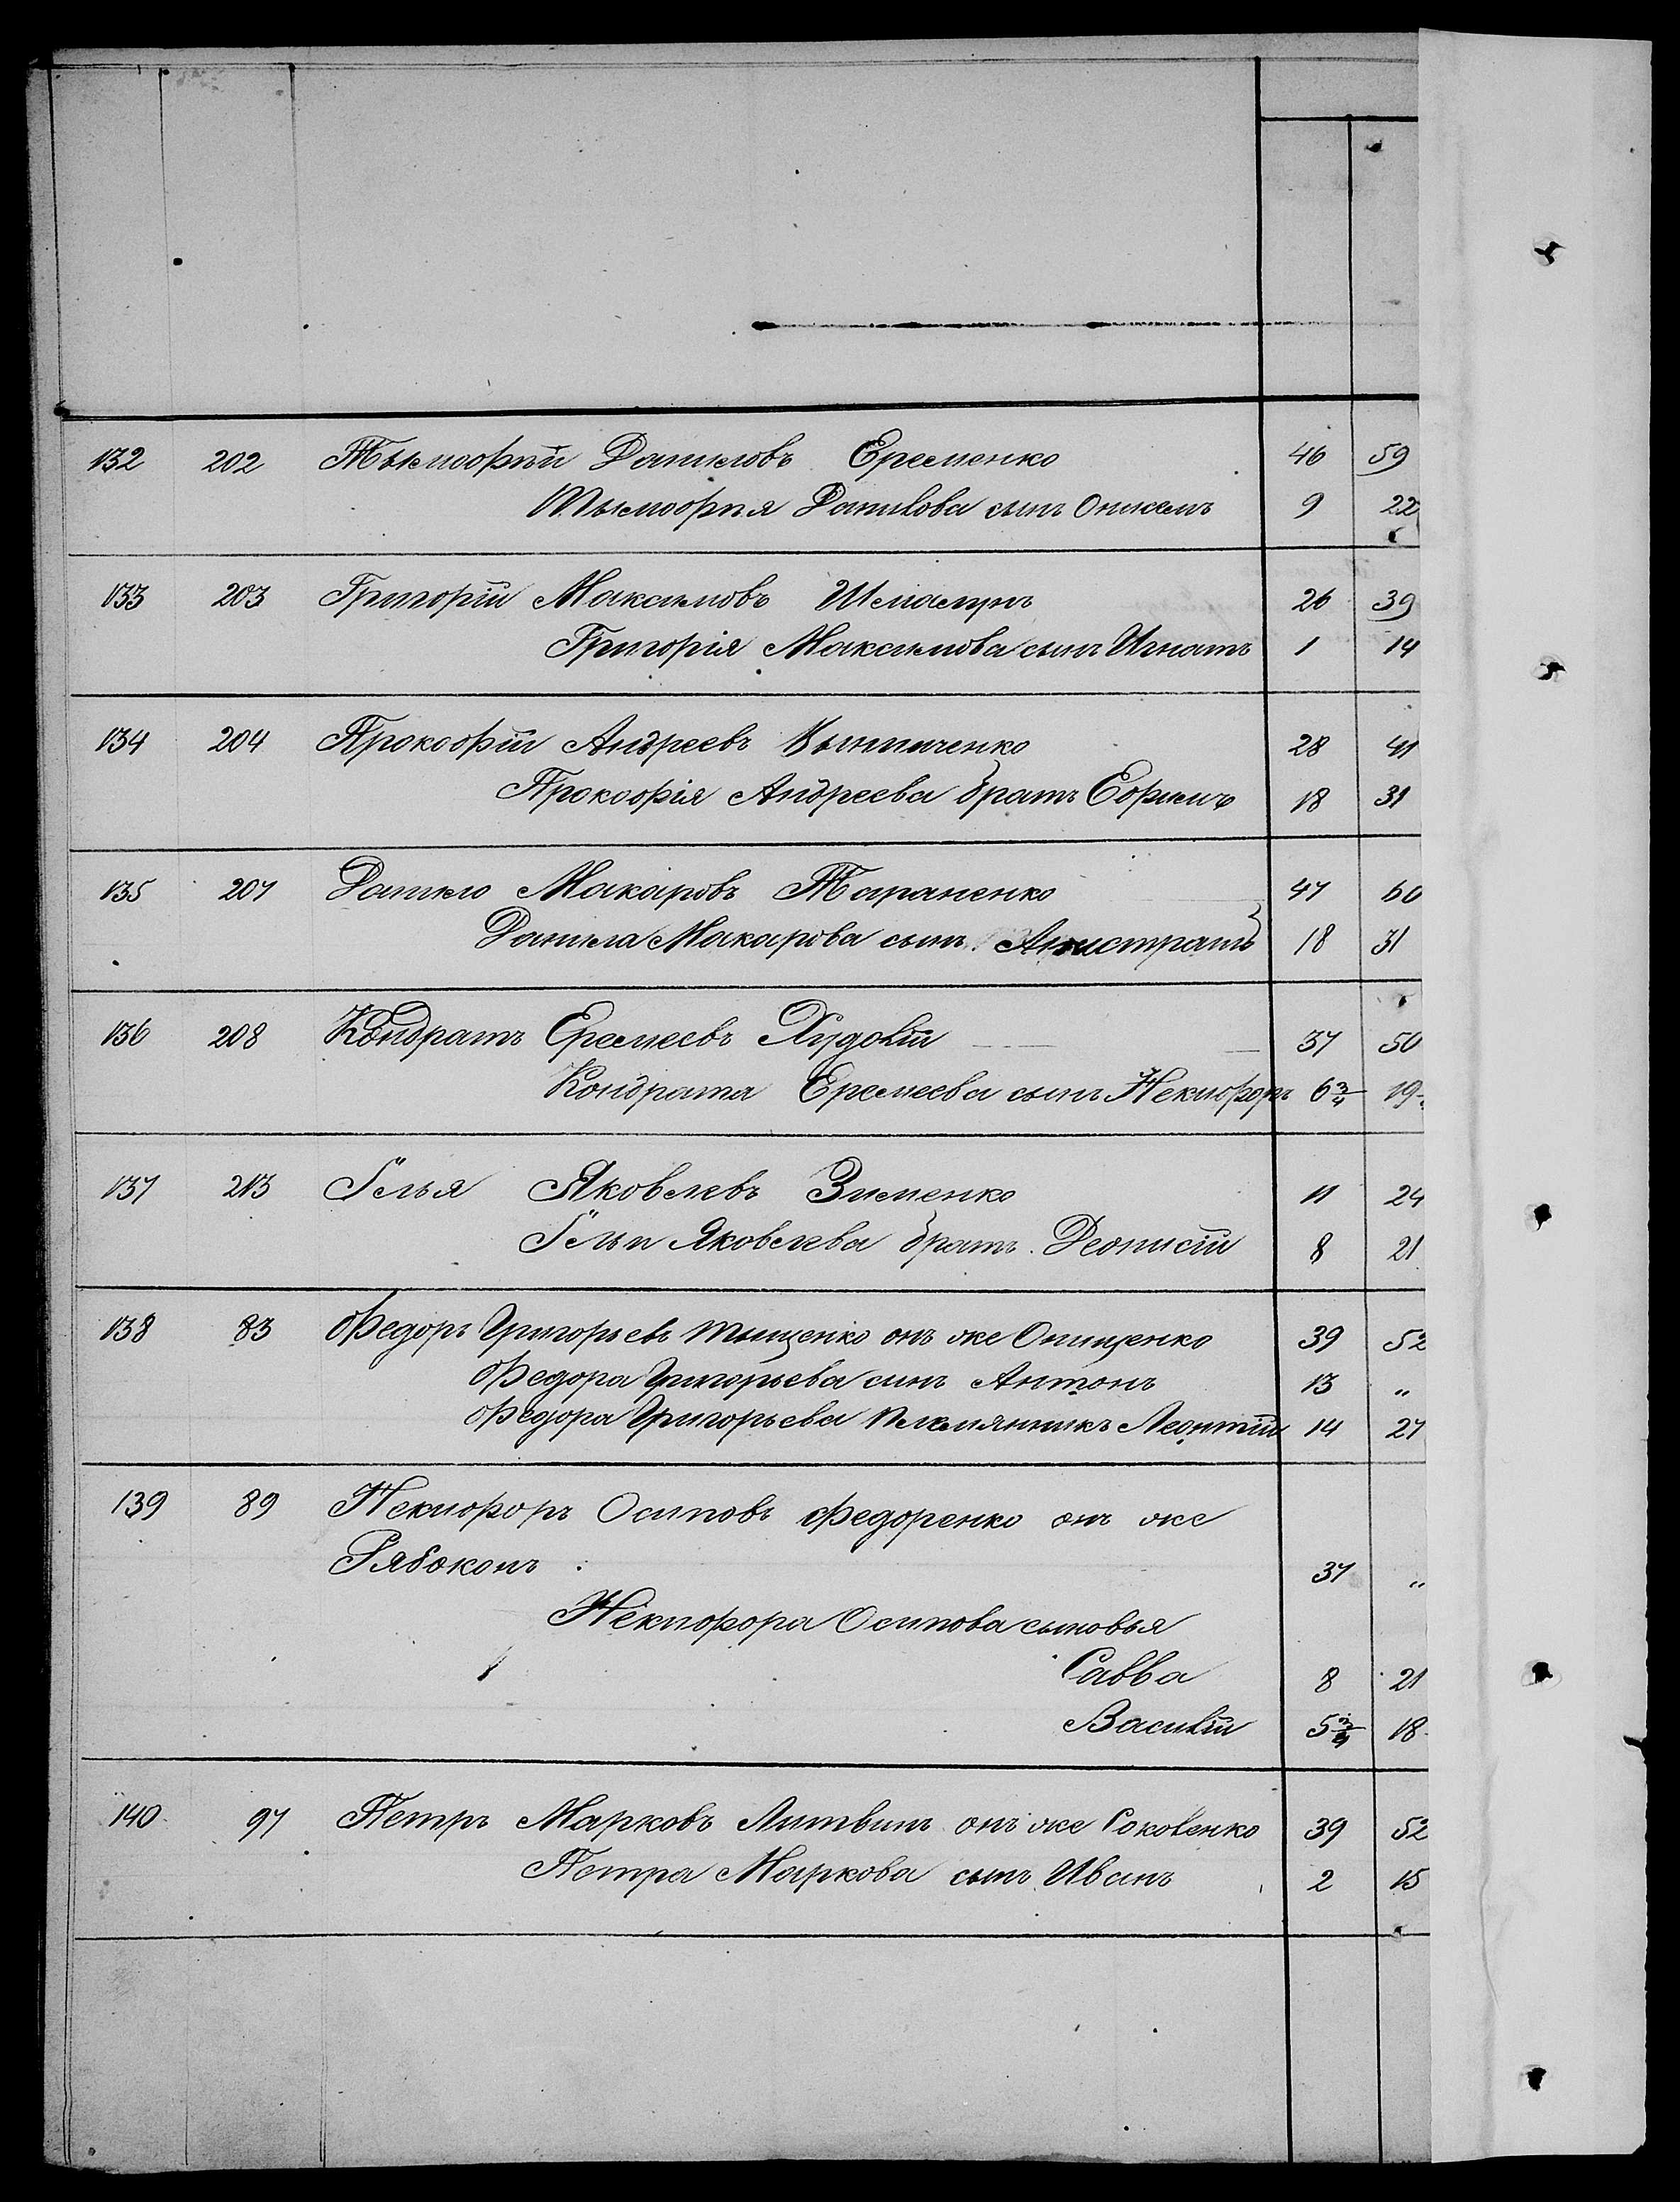 132 202 Тымофей Данилов Еременко 46 59
Тымофея Данилова сын Онисим 9 22
133 203 Григорій Максимовъ 26 39
Григорія Максимова сынъ Игнатъ 1 14
134 204 Прокофій Андреевъ 28 41
Прокофія Андреева братъ Ефимъ 18 31
135 207 Данило Макаровъ Тараненко 47 60
Данила Макарова сынъ Анистратъ 18 31
136 208 Кондратъ Еремеевъ Худолій 37 50
Кондрата Еремеева сынъ Некифоръ 6 3/4 19
137 213 Илья Яковлевъ Зименко 11 24
Ильи Яковлева братъ Деонисій 8 21
138 83 Федоръ Григорьевъ Тыщенко онъ же Онищенко 39 52
Федора Григорьева синъ Антонъ 13 "
Федора Григорьева племянникъ Леонтій 14 27
139 89 Некифоръ Осиповъ Федоренко онъ же
Рябоконь 37 "
Некифора Осипова сыновья
Савва 8 21
Василій 5 18
140 97 Петръ Марковъ Литвинъ онъ же Соковенко 39 52
Петра Маркова сынъ Иванъ 2 15